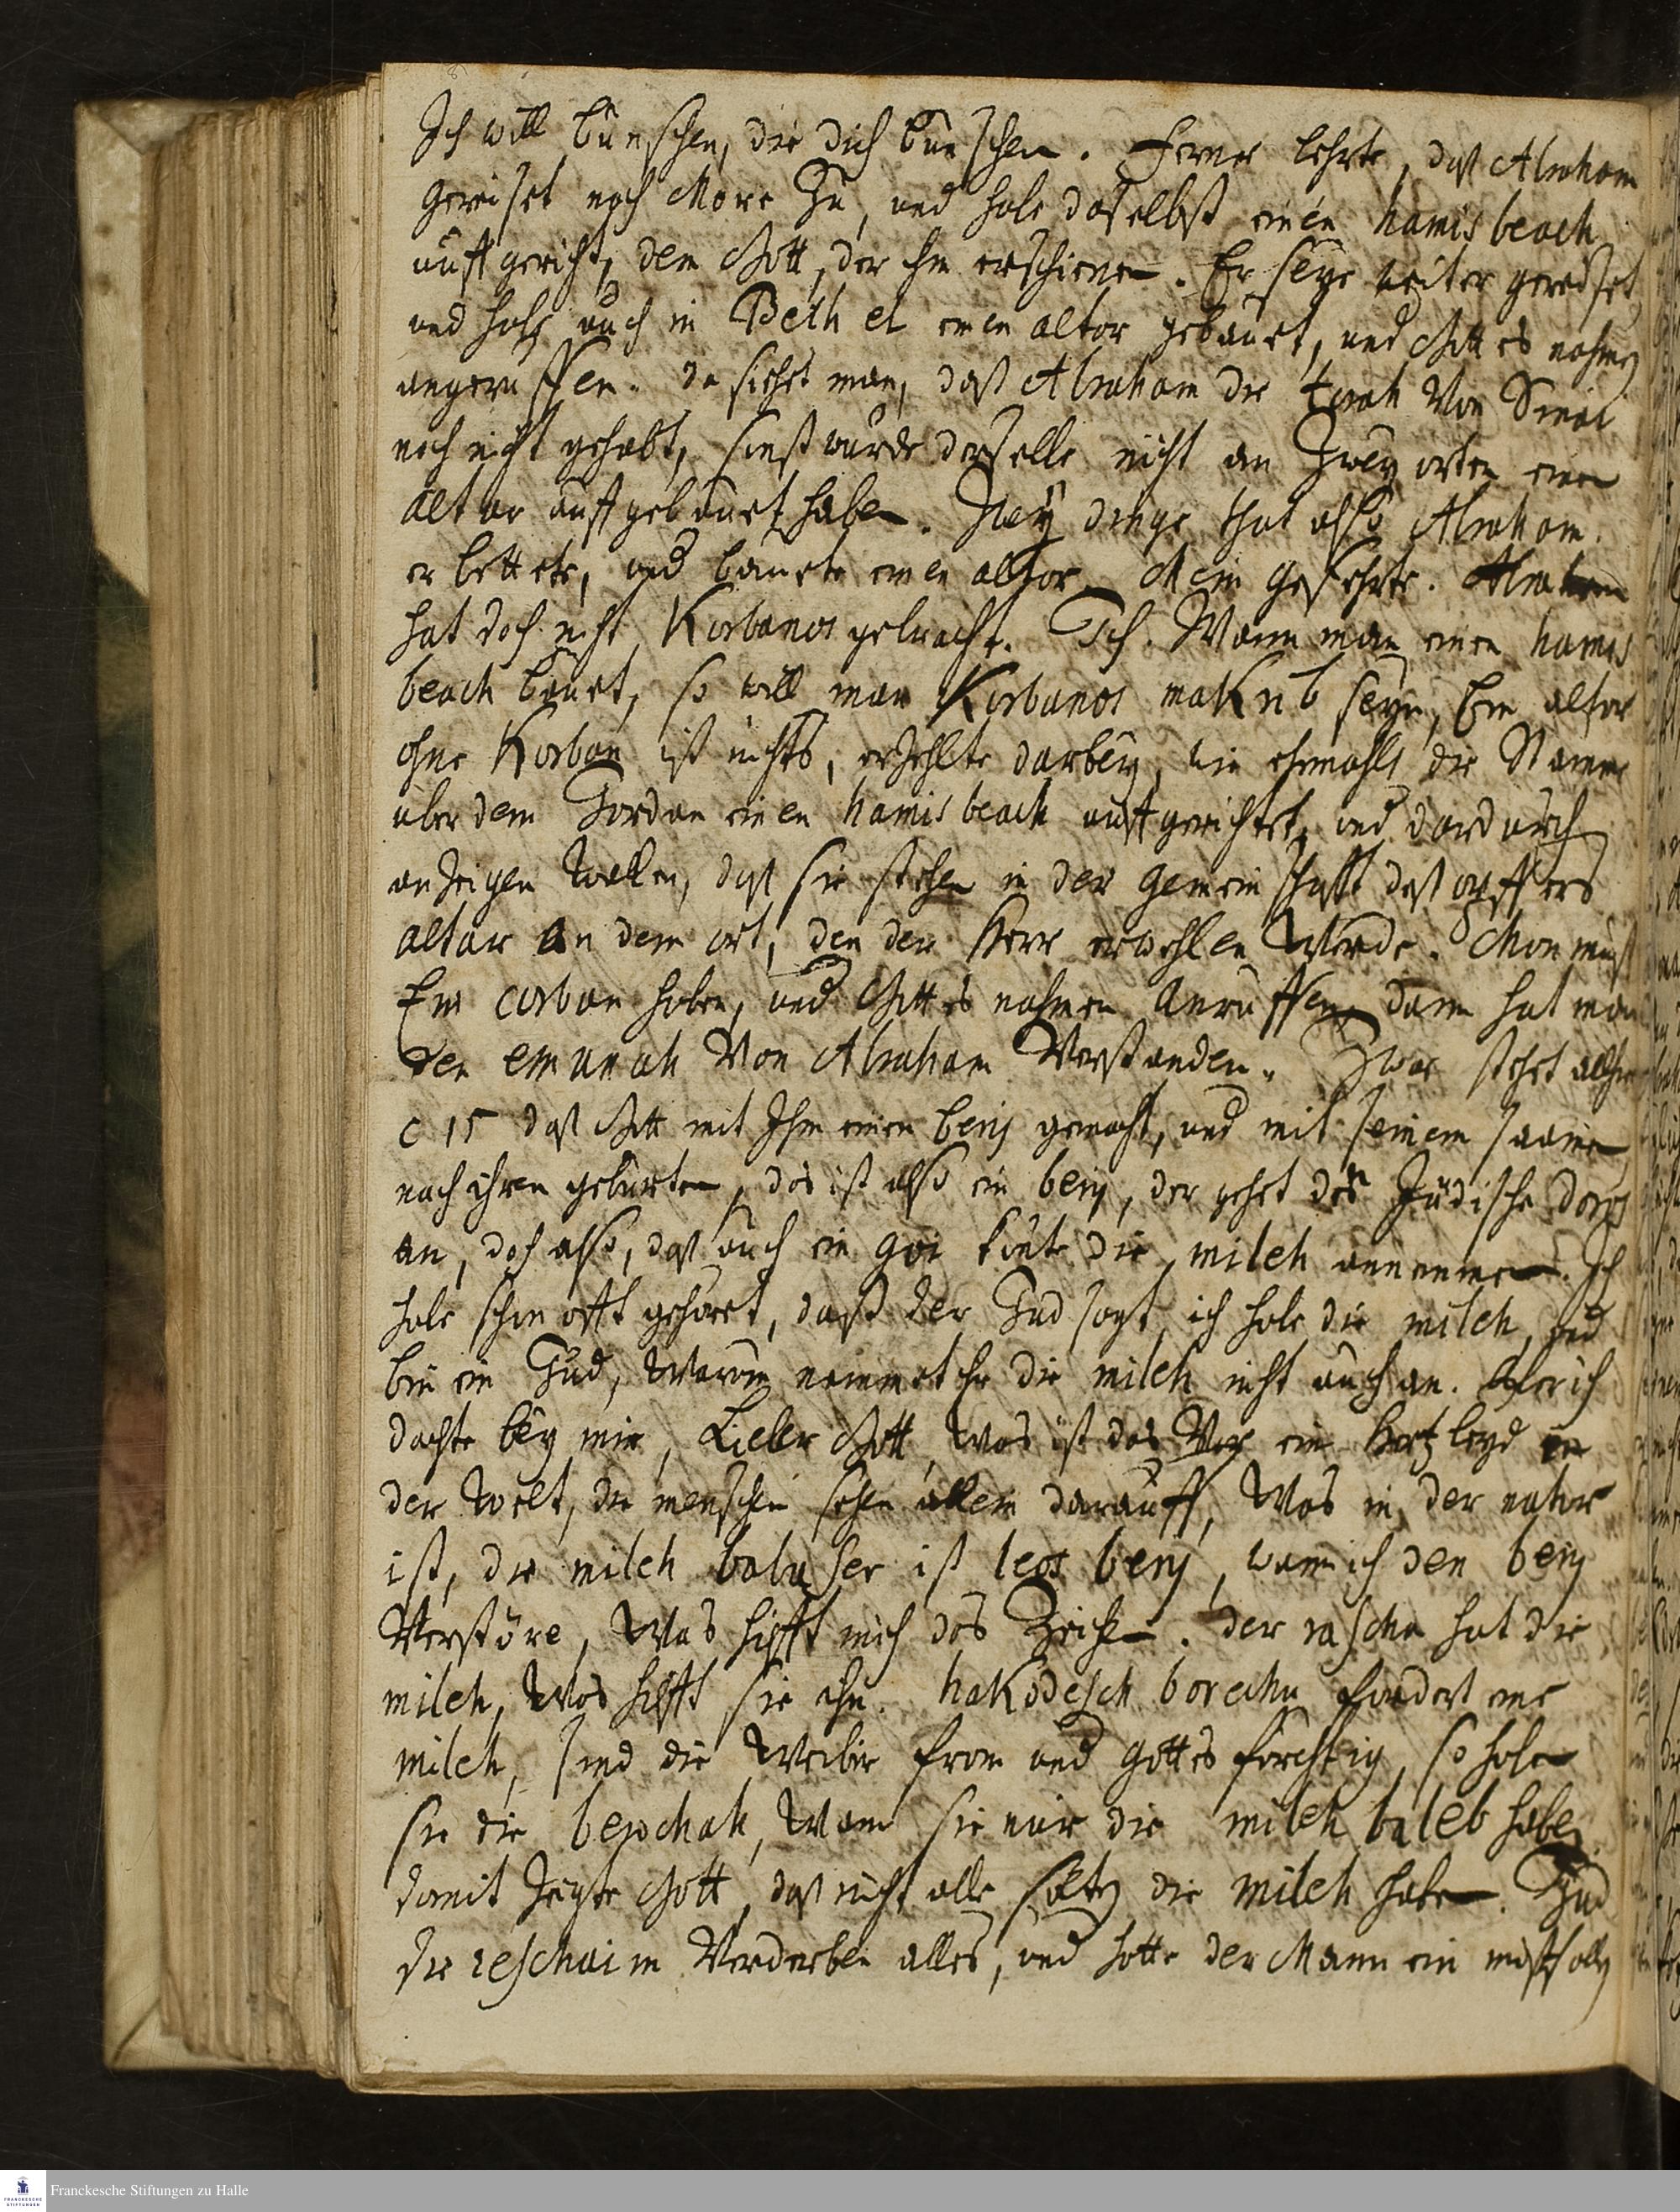 Ich will bünschen, die dich bünschen. Ferner lehrte, daß Abraham
gereiset nach More zu, und habe daselbst einen hamisbeach
auffgericht, dem Gott, der ihm erschienen. Er seye weiter gereiset,
und habe auch in Beth el einen altar gebauet, und Gottes nahmen
angeruffen. da siehet man, daß Abraham die torah von Sinai
noch nicht gehabt, sonst würde derselbe nicht an zwey orten einen
altar auffgebauet haben. Zwey dinge that also Abraham.
er bettete, und bauete einen altar. Mein Gefehrte. Abraham
hat doch nicht Korbanos gebracht. Ich. Wann man einen hamis
beach bauet, so will man Korbanos makrib seyn, Ein altar
ohne Korban ist nichts, erzehlte darbey, wie ehmahls die Stämme
über dem Jordan einen hamisbeach auffgerichtet, und dardurch
anzeigen wollen, daß sie stehen in der gemeinschafft deß opffers
altar an dem ort, den der Herr erwehlen werde. Man muß
Ein corban haben, und Gottes nahmen anruffen, dann hat man
den emunah von Abraham verstanden. Zwar stehet allhier
c 15 daß Gott mit Ihm einen beris gemacht, und mit seinem saamen
nach ihren geburten, das ist also ein beris, der gehet das Jüdische doros
an, doch also, daß auch ein goi könte die milah annemen. Ich
habe schon offt gehöret, daß der Jud sagt, ich habe die milah, und
bin ein Jud, warum nemmet ihr die milah nicht auch an. Aber ich
dachte bey mir, Lieber Gott, was ist das vor ein Hertzleyd in
der welt, die menschen sehen allein darauff, was in der natur
ist, die milah babaser ist leos beris, wann ich den beris
verstöre, was hilfft mich das Zeichen. der rascha hat die
milah, was hilfft sie ihn. hakodesch boruchu fordert eine
milah, sind die weiber from und gottesförchtig, so haben
sie die berochah, wann sie nur die milah baleb haben
damit zeigte Gott, daß nicht alle solten die milah haben. Und
die reschaim verderben alles, und hatte der Mann ein mißfallen
Franckesche Stiftungen zu Halle